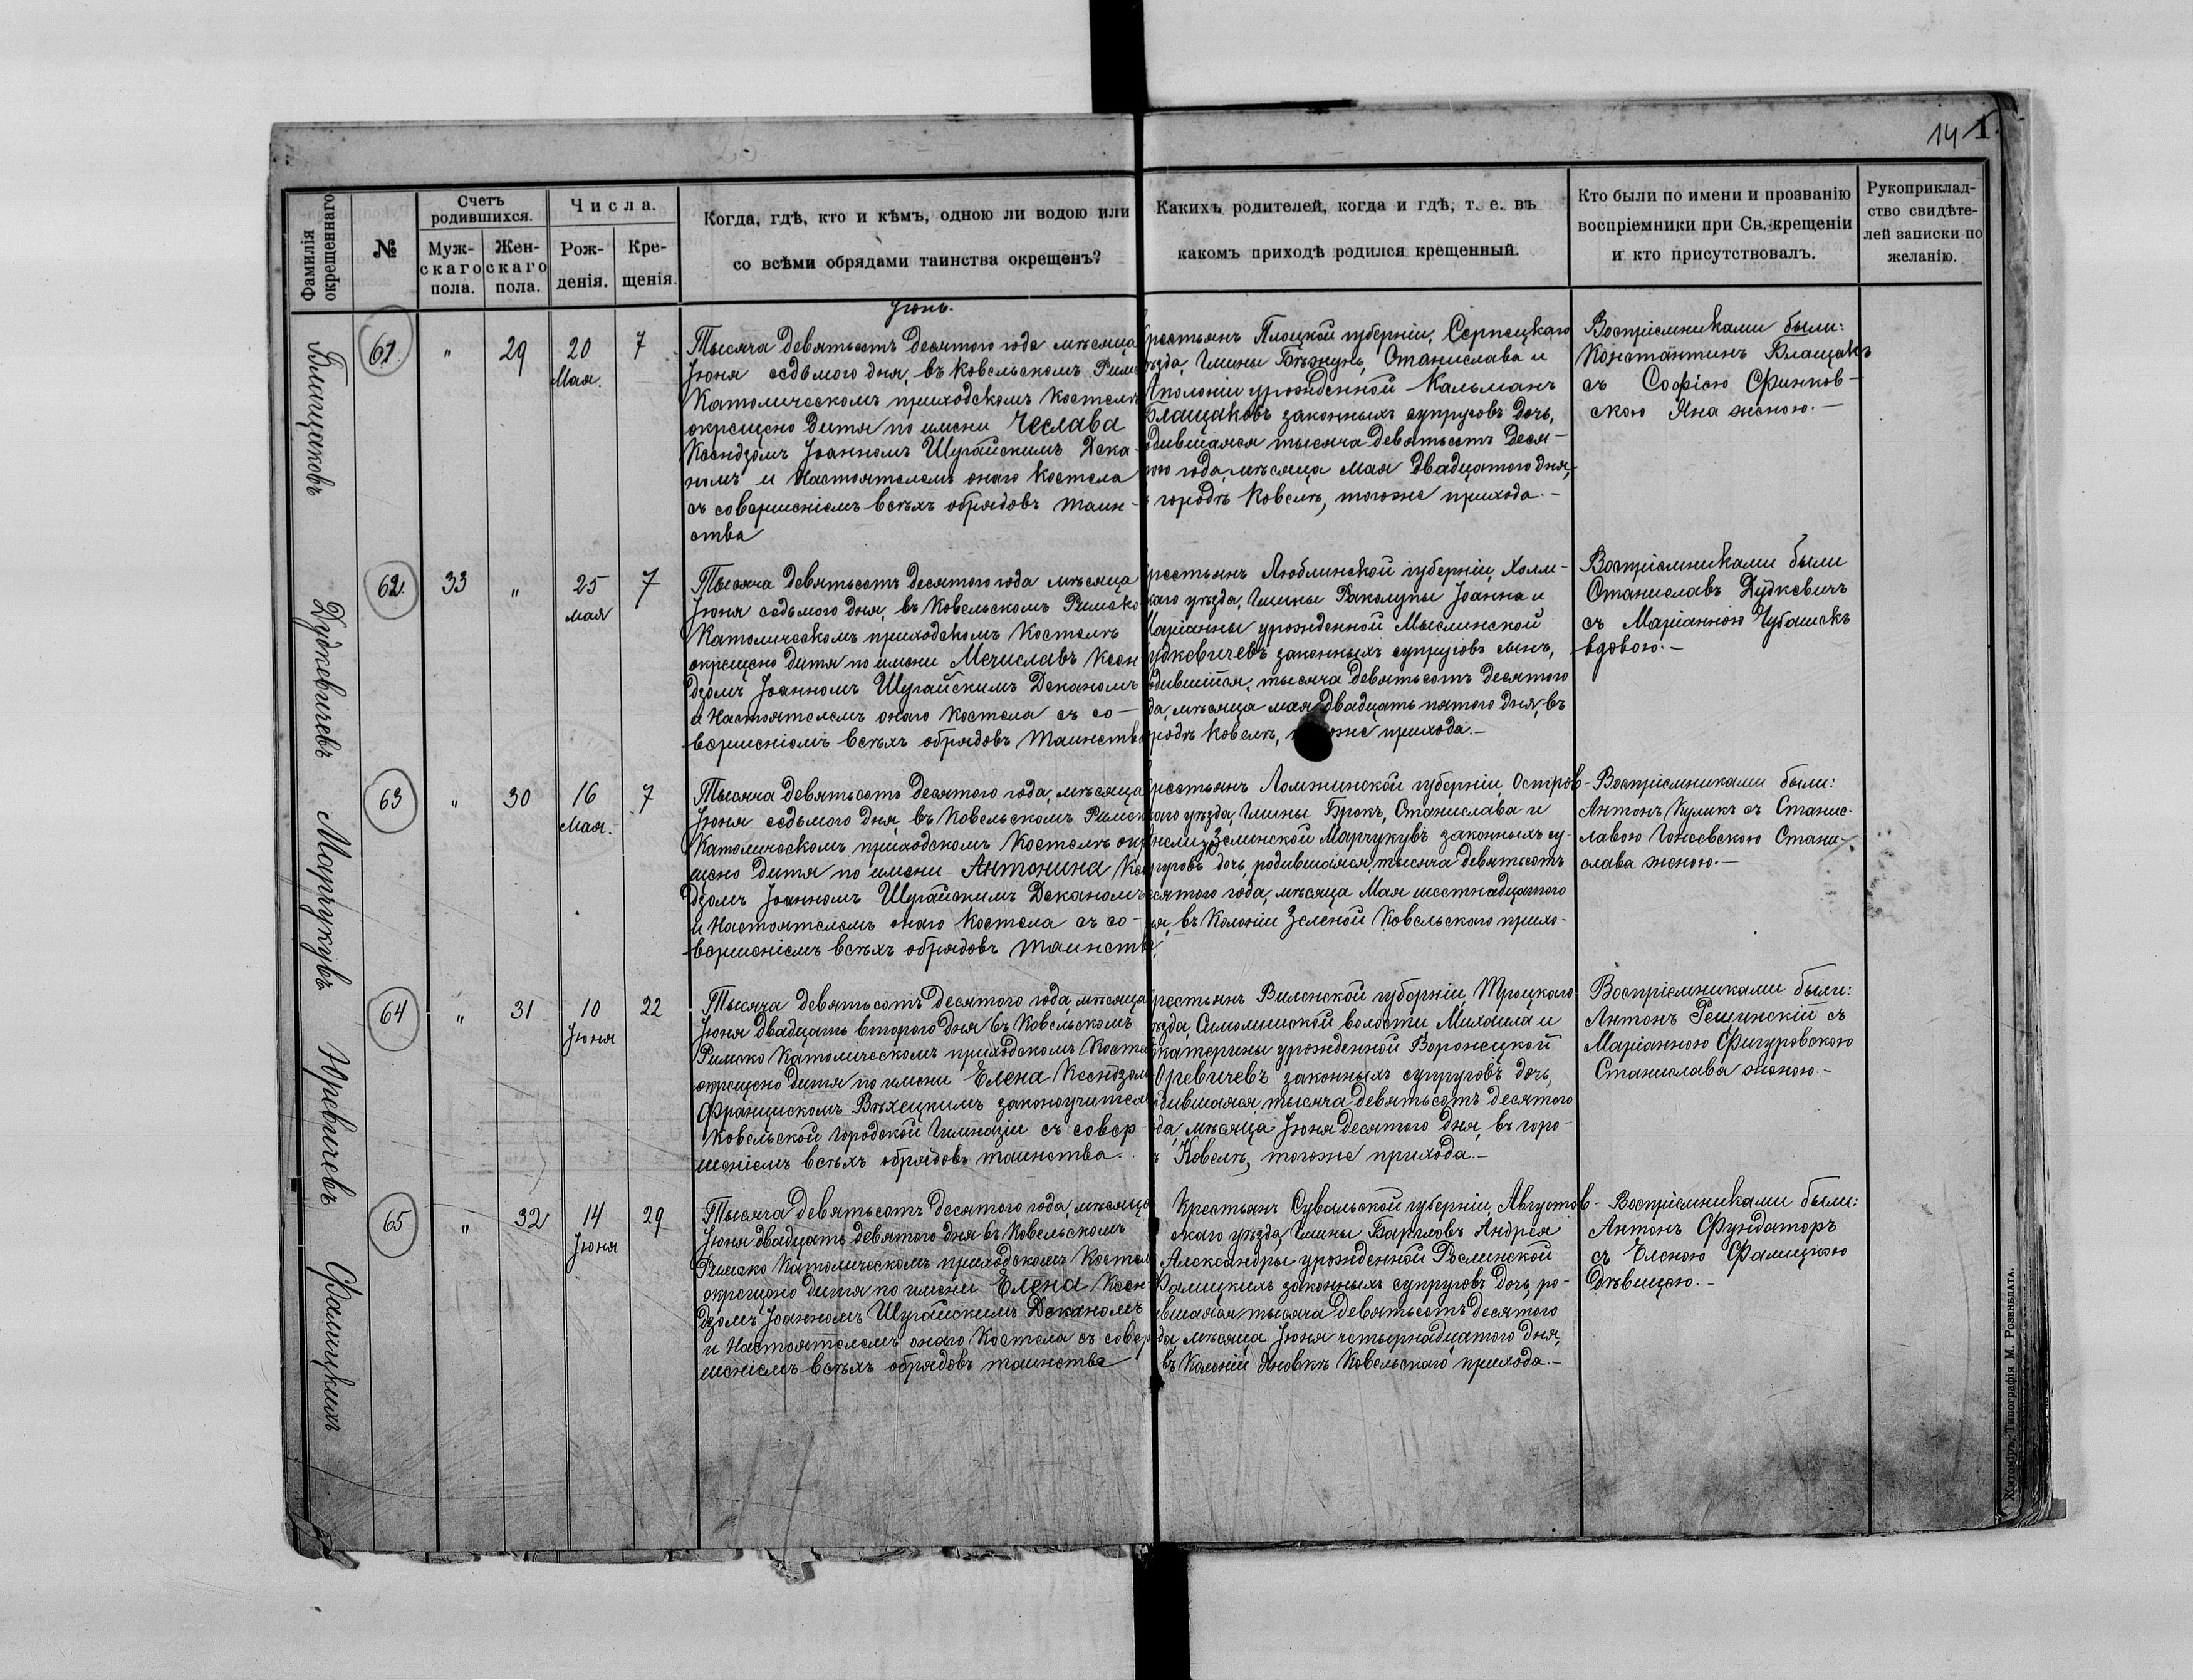 14 1
Фамилія окрещеннаго
№
Счетъ родившихся.
Муж-скаго пола.
Жен-скаго пола.
Числа.
Рож-денія.
Кре-щенія.
Когда, гдѣ, кто и кѣмъ, одною ли водою или
со всѣми обрядами таинства окрещенъ?
Какихъ родителей, когда и гдѣ, т. е. въ
какомъ приходѣ родился крещенный.
Кто были по имени и прозванію
воспріемники при Св. крещеніи
и кто присутствовалъ.
Рукоприклад-
ство свидѣте-
лей записки по
желанію.
Іюнь.
Блащаковъ
61.
"
29
20
Мая.
7
Тысяча девятьсотъ десятого года мѣсяца
Іюня седьмого дня, въ Ковельскомъ Римс
Католическомъ приходскомъ костелѣ
окрещено дитя по имени Чеслава
Ксендзомъ Іоанномъ Шугайскимъ Дека-
номъ и Настоятелемъ онаго костела
съ совершеніемъ всѣхъ обрядовъ таин-
ства
рестьянъ Плоцкой губерніи, Серпецкаго
ѣзда, Гмины Бѣжунь, Станислава и
Аполоніи урожденной Кальманъ
Блащаковъ законныхъ супруговъ дочь,
одившаяся тысяча девятьсотъ деся-
ого года, мѣсяца Мая двадцатого дня,
городѣ Ковелѣ, тогоже прихода.-
Воспріемниками были:
Константинъ Блащакъ
съ Софіею Финков-
скою Яна женою.-
Дудкевичевъ
62.
33
"
25
мая
7
Тысяча девятьсотъ десятого года мѣсяца
Іюня седьмого дня, въ Ковельскомъ Римско
Католическомъ приходскомъ Костелѣ
окрещено дитя по имени Мечиславъ Ксен
дзомъ Іоанномъ Шугайскимъ Деканомъ
и Настоятелемъ онаго костела съ со-
вершеніемъ всѣхъ обрядовъ Таинства
рестьянъ Люблинской губерніи, Холм-
каго уѣзда, Гмины Раколупы Іоанна и
Маріанны урожденной Мыслинской
удкевичевъ законныхъ супруговъ сынъ,
одившійся, тысяча девятьсотъ десятого
да, мѣсяца мая двадцать пятого дня, въ
родѣ Ковелѣ, тогоже прихода.-
Воспріемниками были
Станиславъ Дудкевичъ
съ Маріанною Чубашекъ
вдовою.-
Марчукувъ
63
"
30
16
Мая.
7
Тысяча девятьсотъ десятого года, мѣсяца
Іюня седьмого дня, въ Ковельскомъ Римск
Католическомъ приходскомъ Костелѣ окр
щено дитя по имени Антонина Ксен
дзомъ Іоанномъ Шугайскимъ Деканомъ
и Настоятелемъ онаго Костела съ со-
вершеніемъ всѣхъ обрядовъ таинства
рестьянъ Ломжинской губерніи, Остров-
каго уѣзда, Гмины Брокъ, Станислава и
Зелинской Марчукувъ законныхъ су-
руговъ дочь, родившаяся, тысяча девятьсотъ
есятого года, мѣсяца Мая шестнадцатого
ня, въ Колоніи Зеленой Ковельского прихо-
Воспріемниками были:
Антонъ Куликъ съ Станис-
лавою Гожевскою Стани-
слава женою.-
Юревичевъ
64
"
31
10
Іюня
22
Тысяча девятьсотъ десятого года, мѣсяца
Іюня двадцать второго дня въ Ковельскомъ
Римско Католическомъ приходскомъ Косте
окрещено дитя по имени Елена Ксендзом
Францискомъ Вѣхецкимъ законоучител
Ковельской Городской Гимназіи съ совер-
шеніемъ всѣхъ обрядовъ таинства.
рестьянъ Виленской губерніи, Троцкаго
ѣзда, волости Михаила и
Екатерины урожденной Воронецкой
Юревичевъ законныхъ супруговъ дочь,
одившаяся, тысяча девятьсотъ десятого
да, мѣсяца Іюня десятого дня, въ горо-
ѣ Ковелѣ, тогоже прихода.-
Воспріемниками были:
Антонъ Рещинскій съ
Маріанною Фигуровскою
Станислава женою.-
Фалицкихъ
65
"
32
14
Іюня
29
Тысяча девятьсотъ десятого года, мѣсяца
Іюня двадцать девятого дня въ Ковельскомъ
Римско Католическомъ приходскомъ Костел
окрещено дитя по имени Елена Ксен-
дзомъ Іоанномъ Шугайскимъ Деканомъ
и Настоятелемъ онаго Костела съ совер
шеніемъ всѣхъ обрядовъ таинства
Крестьянъ Сувалкской губерніи, Августов-
скаго уѣзда, Гмины Баргловъ Андрея
Александры урожденной Рослинской
Фалицкихъ законныхъ супруговъ дочь, ро-
ившаяся тысяча девятьсотъ десятого
да мѣсяца Іюня четырнадцатого дня,
въ Колоніи Яновкѣ Ковельскаго прихода.-
Воспріемниками были:
Антонъ Фундаторъ
съ Еленою Фалицкою
Дѣвицею.-
Житоміръ, Типографія М. Розенблата.